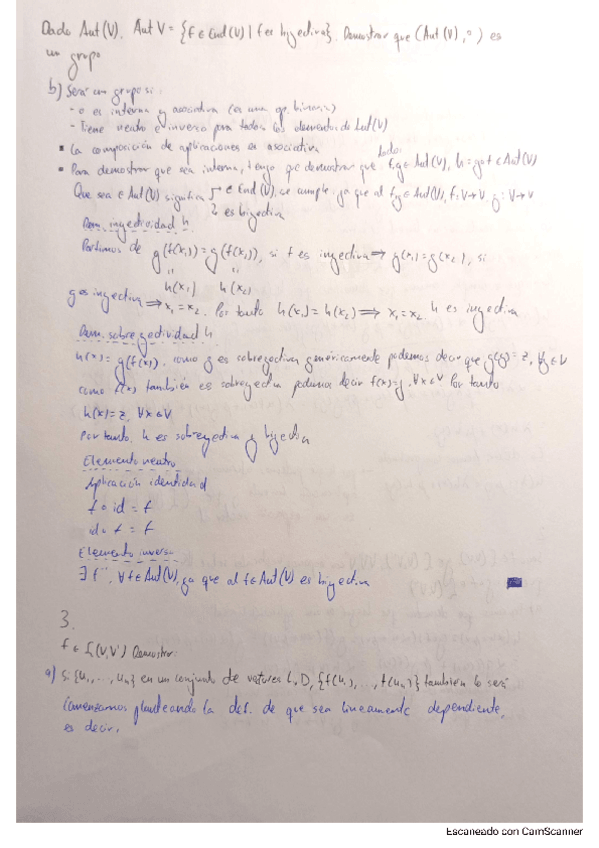 Dado Aut(V). Aut V = {f ∈ End(V) | f es biyectiva}. Demostrar que (Aut(V), ∘) es
un grupo
b) Será un grupo si:
- ∘ es interna y asociativa (es una op. binaria)
- Tiene neutro e inverso para todos los elementos de Aut(V)
▪ La composición de aplicaciones es asociativa
▪ Para demostrar que sea interna, tengo que demostrar que dados f,g ∈ Aut(V), h = g∘f ∈ Aut(V)
Que sea ∈ Aut(V) significa { ∈ End(V), se cumple, ya que al f,g ∈ Aut(V), f: V→V g: V→V
es biyectiva
Dem. inyectividad h
Partimos de g(f(x₁)) = g(f(x₂)), si f es inyectiva ⟹ g(x₁) = g(x₂), si
h(x₁) h(x₂)
g es inyectiva ⟹ x₁ = x₂. Por tanto h(x₁) = h(x₂) ⟹ x₁ = x₂ h es inyectiva
Dem. sobreyectividad h
h(x) = g(f(x)), como g es sobreyectiva genéricamente podemos decir que g(y) = z, ∀y ∈ V
como f(x) también es sobreyectiva podemos decir f(x) = y, ∀x ∈ V Por tanto
h(x) = z, ∀x ∈ V
Por tanto, h es sobreyectiva y biyectiva
Elemento neutro
Aplicación identidad
f ∘ id = f
id ∘ f = f
Elemento inverso
∃ f⁻¹, ∀f ∈ Aut(V), ya que al f ∈ Aut(V) es biyectiva
3.
f ∈ L(V,V') Demostrar:
a) Si {u₁, ..., uₙ} en un conjunto de vectores L.D, {f(u₁), ..., f(uₙ)} también lo será
Comenzamos planteando la def. de que sea linealmente dependiente,
es decir,
Escaneado con CamScanner